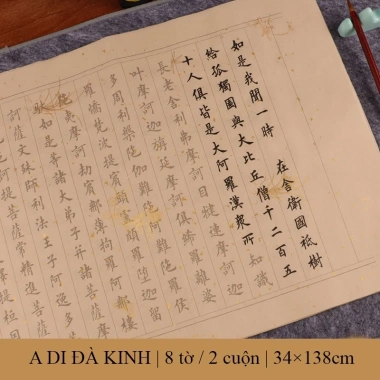 如是我聞一時 在舍衛國祗樹
給孤獨園與大比丘僧千二百五
十人俱皆是大阿羅漢衆所知識
長老舍利弗摩訶目犍連摩訶迦
葉摩訶迦旃延摩訶俱絺羅離婆
多周利槃陀伽難陀阿難陀羅侯
羅憍梵波提賓頭盧頗羅墮迦留
夷摩訶劫賓那薄拘羅阿樓
馱如是等諸大弟子并諸菩薩摩
訶薩文殊師利法王子阿逸多
訶提菩薩常精進菩薩
提桓
A DI ĐÀ KINH | 8 tờ / 2 cuộn | 34×138cm